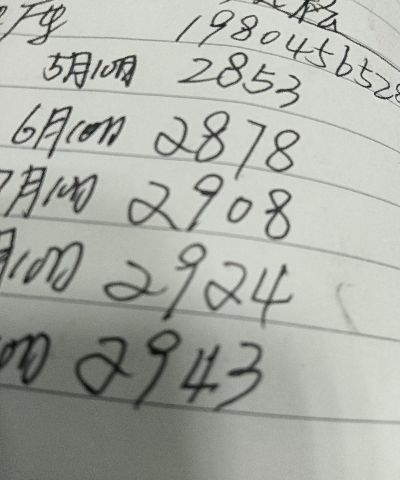 1980456528
5月10日 2853
6月10日 2878
7月10日 2908
月10日 2924
日 2943